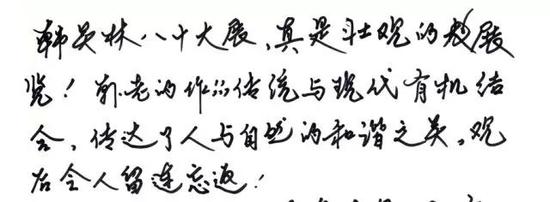 韩美林八十大展，真是壮观的展
览！韩老的作品传统与现代有机结
合，传达了人与自然的和谐之美。观
后令人留连忘返！